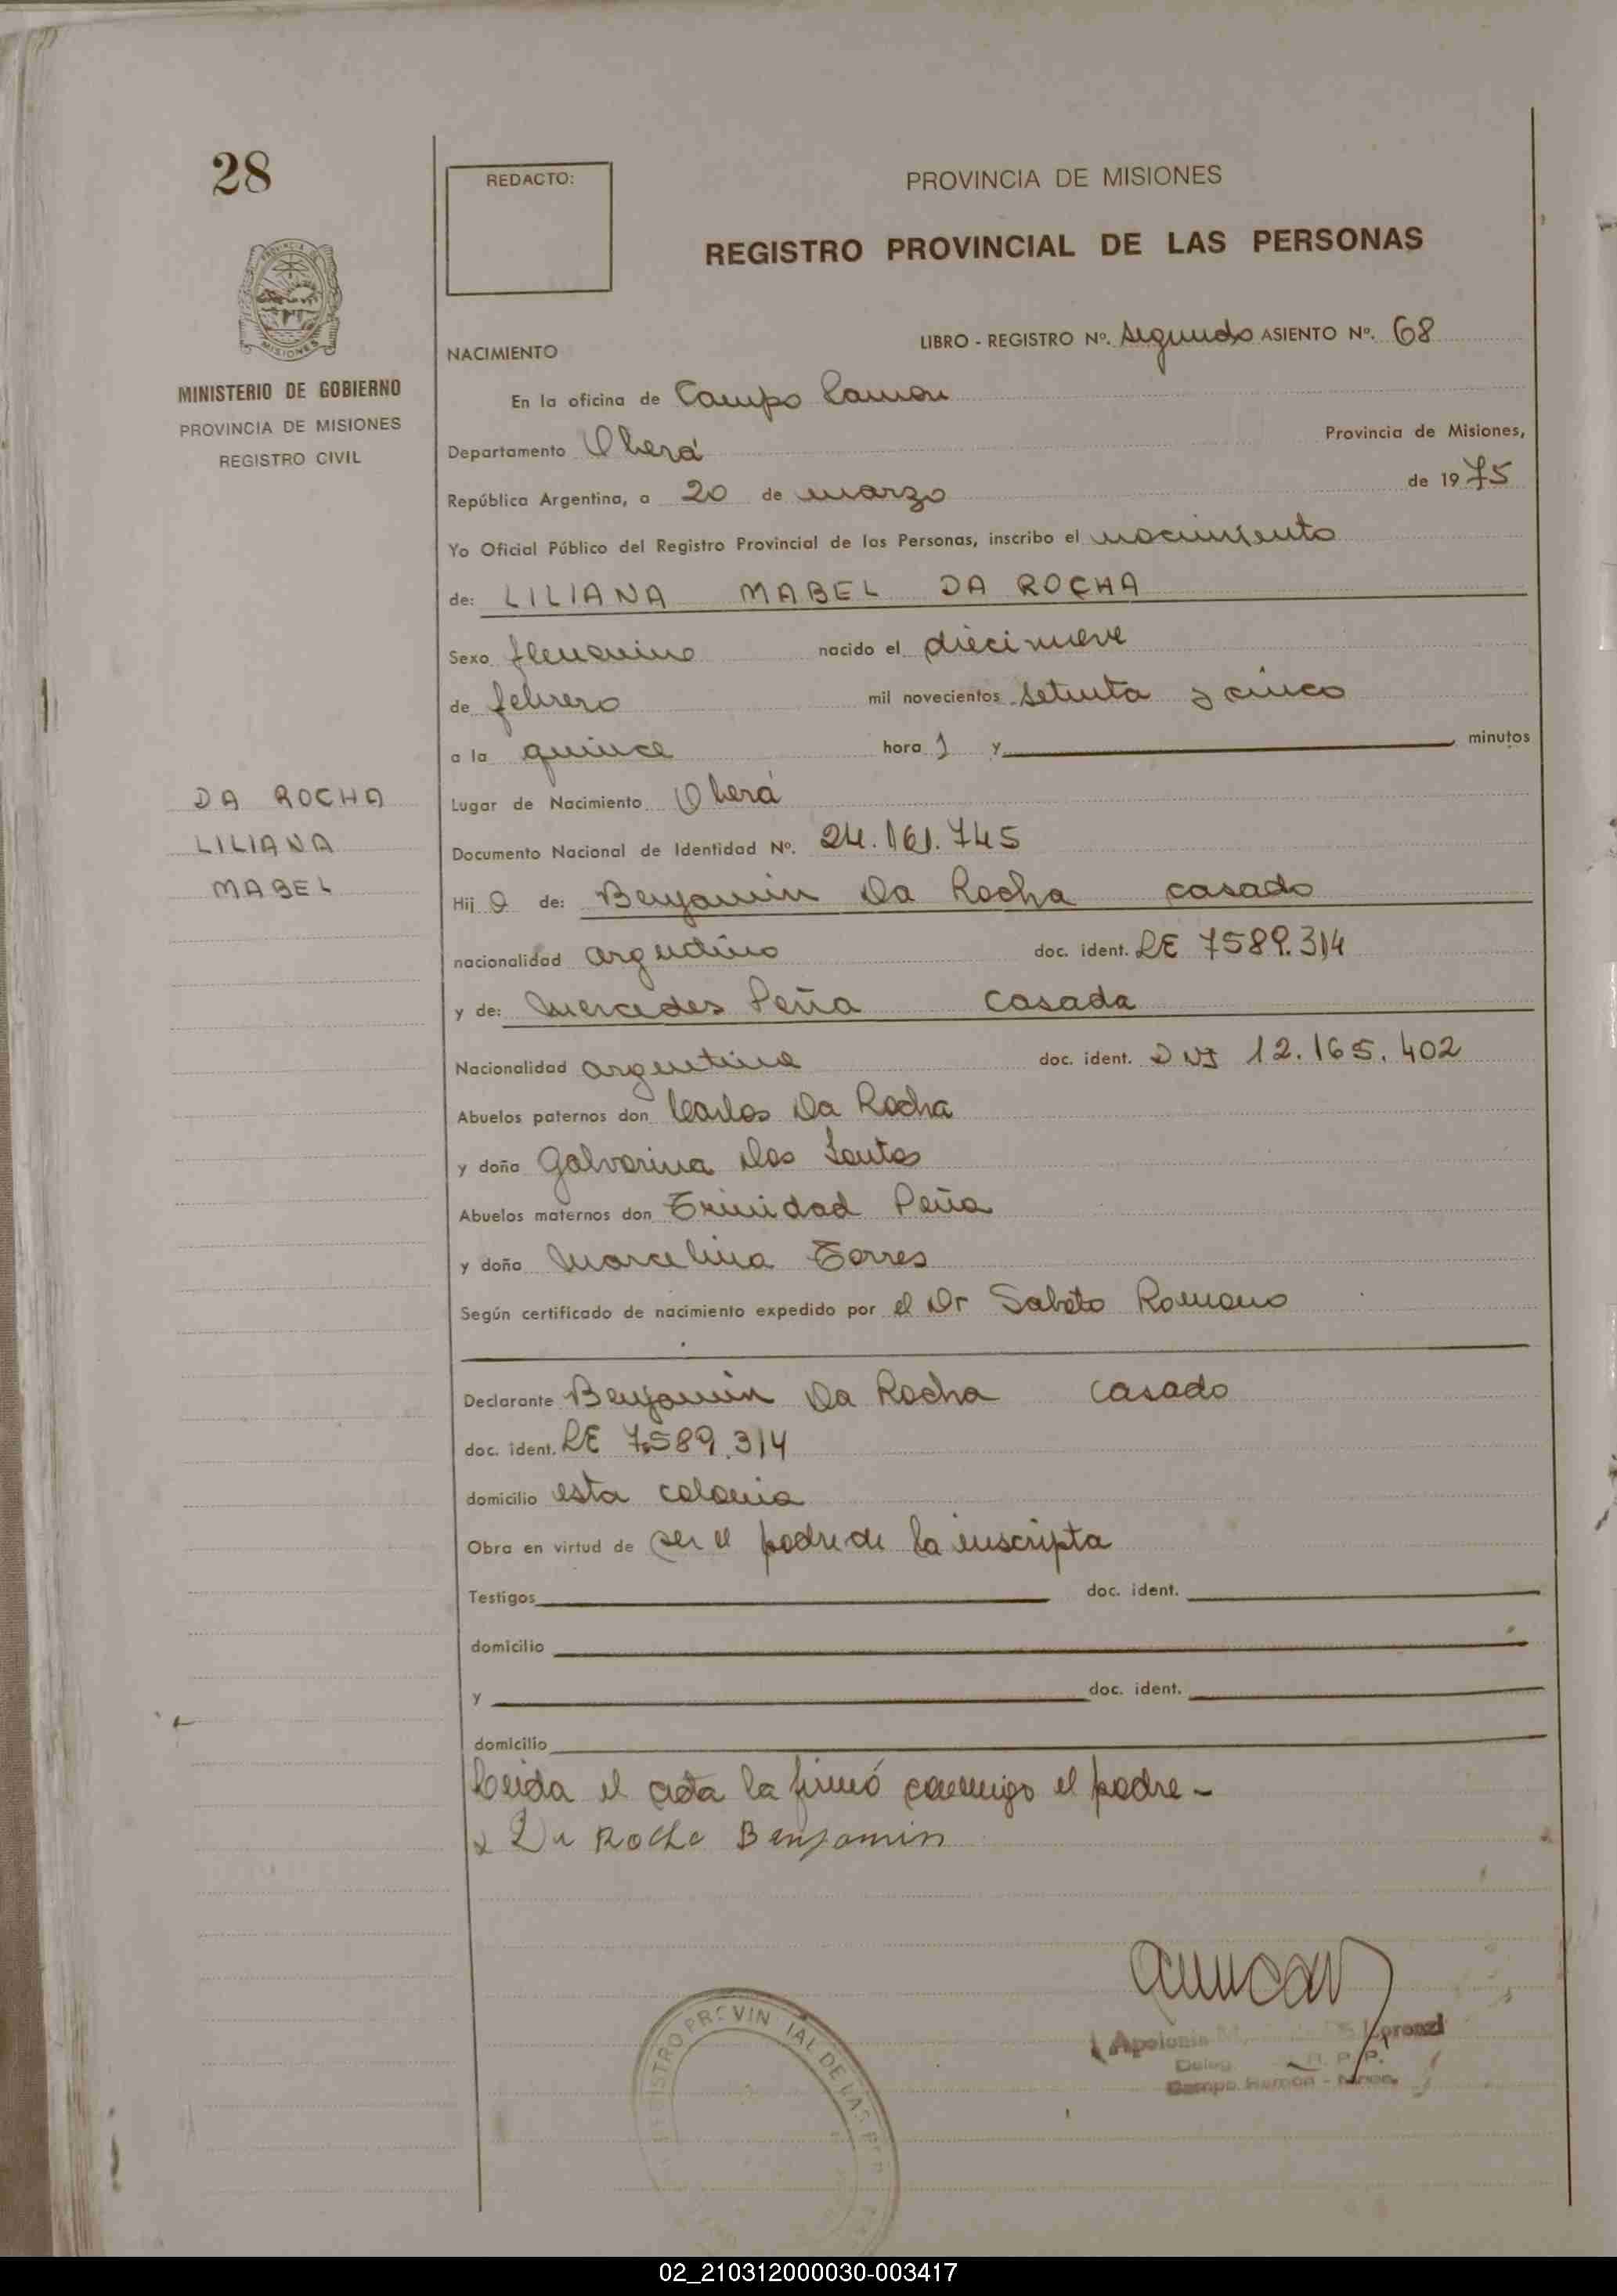 28
REDACTO:
PROVINCIA DE MISIONES
REGISTRO PROVINCIAL DE LAS PERSONAS
MISIONES
MINISTERIO DE GOBIERNO
PROVINCIA DE MISIONES
REGISTRO CIVIL
LIBRO - REGISTRO Nº. segundo ASIENTO Nº. 68
NACIMIENTO
En la oficina de Campo Ramon
Departamento Oberá Provincia de Misiones,
República Argentina, a 20 de marzo de 1975
Yo Oficial Público del Registro Provincial de las Personas, inscribo el nacimiento
de: LILIANA MABEL DA ROCHA
Sexo femenino nacido el diecinueve
de febrero mil novecientos setenta y cinco
a la quince hora y minutos
DA ROCHA
LILIANA
MABEL
Lugar de Nacimiento Oberá
Documento Nacional de Identidad Nº. 24.161.745
Hij a de: Benjamin Da Rocha casado
nacionalidad argentino doc. ident. LE 7589.314
y de: Mercedes Peña casada
Nacionalidad argentina doc. ident. DNI 12.165.402
Abuelos paternos don Carlos Da Rocha
y doña Galvarina Dos Santos
Abuelos maternos don Trinidad Peña
y doña Marcelina Torres
Según certificado de nacimiento expedido por el Dr Sabato Romano
Declarante Benjamin Da Rocha casado
doc. ident. LE 7.589.314
domicilio esta colonia
Obra en virtud de ser el padre de la inscripta
Testigos doc. ident.
domicilio
y doc. ident.
domicilio
Leida el acta la firmó conmigo el padre -
x Da Rocha Benjamin
Apolonia Lorenzi
Deleg. R. P. P.
Campo Ramón - Mnes.
REGISTRO PROVINCIAL DE LAS PER
02_210312000030-003417